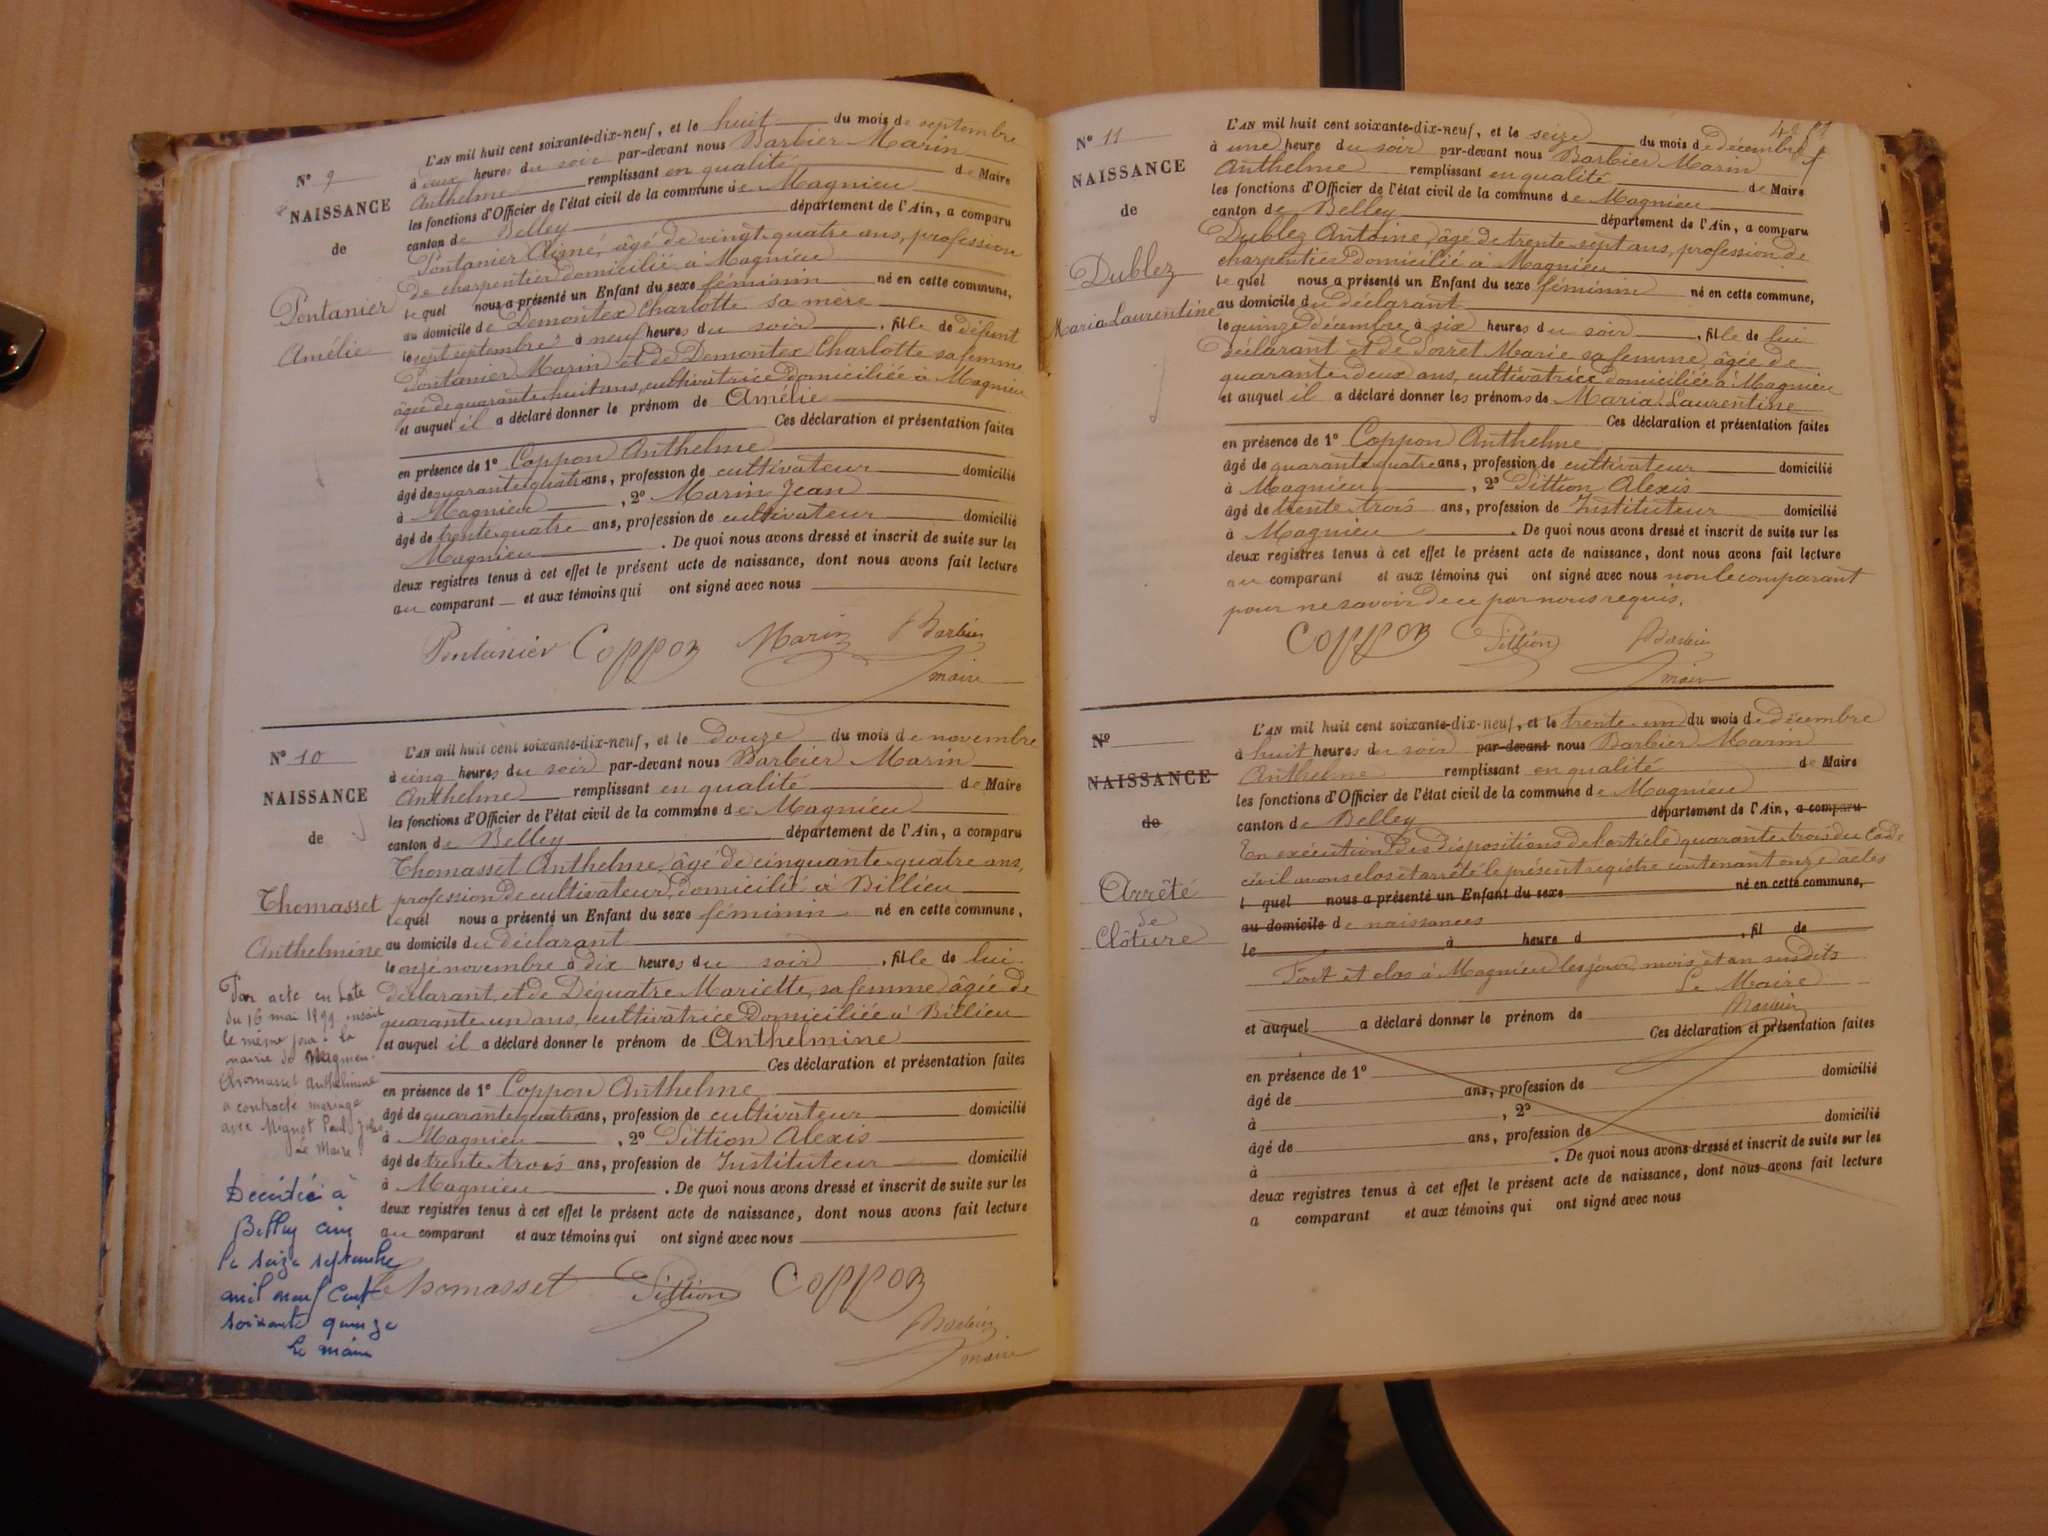 N° 9
NAISSANCE
de
Pontanier
Amélie
L'AN mil huit cent soixante-dix-neuf, et le huit du mois de septembre
à deux heures du soir par-devant nous Barbier Marin
Anthelme remplissant en qualité de Maire
les fonctions d'Officier de l'état civil de la commune de Magnieu
canton de Belley département de l'Ain, a comparu
Pontanier Aimé, âgé de vingt-quatre ans, profession
de charpentier domicilié à Magnieu
le quel nous a présenté un Enfant du sexe féminin né en cette commune,
au domicile de Demontex Charlotte sa mère
le sept septembre à neuf heures du soir, fille de défunt
Pontanier Marin et de Demontex Charlotte sa femme
âgée de quarante-huit ans, cultivatrice domiciliée à Magnieu
et auquel il a déclaré donner le prénom de Amélie
Ces déclaration et présentation faites
en présence de 1° Coppon Anthelme
âgé de quarante quatre ans, profession de cultivateur domicilié
à Magnieu, 2° Marin Jean
âgé de trente-quatre ans, profession de cultivateur domicilié
Magnieu. De quoi nous avons dressé et inscrit de suite sur les
deux registres tenus à cet effet le présent acte de naissance, dont nous avons fait lecture
au comparant et aux témoins qui ont signé avec nous
Pontanier Coppon Marin Barbier
maire
N° 10
NAISSANCE
de
Thomasset
Anthelmine
Par acte en date
du 16 mai 1899 inscrit
le même jour à la
mairie de Magnieu
Thomasset Anthelmine
a contracté mariage
avec Mignot Paul
Le Maire
Décédée à
Belley
le seize septembre
mil neuf cent
soixante quinze
Le maire
L'AN mil huit cent soixante-dix-neuf, et le douze du mois de novembre
à cinq heures du soir par-devant nous Barbier Marin
Anthelme remplissant en qualité de Maire
les fonctions d'Officier de l'état civil de la commune de Magnieu
canton de Belley département de l'Ain, a comparu
Thomasset Anthelme, âgé de cinquante-quatre ans,
profession de cultivateur, domicilié à Billieu
le quel nous a présenté un Enfant du sexe féminin né en cette commune,
au domicile du déclarant
le onze novembre à dix heures du soir, fille de lui
déclarant, et de Déquatre Mariette, sa femme, âgée de
quarante un ans, cultivatrice domiciliée à Billieu
et auquel il a déclaré donner le prénom de Anthelmine
Ces déclaration et présentation faites
en présence de 1° Coppon Anthelme
âgé de quarante quatre ans, profession de cultivateur domicilié
à Magnieu, 2° Pittion Alexis
âgé de trente-trois ans, profession de Instituteur domicilié
à Magnieu. De quoi nous avons dressé et inscrit de suite sur les
deux registres tenus à cet effet le présent acte de naissance, dont nous avons fait lecture
au comparant et aux témoins qui ont signé avec nous
Thomasset Pittion Coppon
Barbier
maire
N° 11
NAISSANCE
de
Dublez
Maria Laurentine
L'AN mil huit cent soixante-dix-neuf, et le seize du mois de décembre
à une heure du soir par-devant nous Barbier Marin
Anthelme remplissant en qualité de Maire
les fonctions d'Officier de l'état civil de la commune de Magnieu
canton de Belley département de l'Ain, a comparu
Dublez Antoine, âgé de trente-sept ans, profession de
charpentier domicilié à Magnieu
le quel nous a présenté un Enfant du sexe féminin né en cette commune,
au domicile du déclarant
le quinze décembre à six heures du soir, fille de lui
déclarant et de Sorret Marie sa femme, âgée de
quarante-deux ans, cultivatrice domiciliée à Magnieu
et auquel il a déclaré donner les prénoms de Maria Laurentine
Ces déclaration et présentation faites
en présence de 1° Coppon Anthelme
âgé de quarante quatre ans, profession de cultivateur domicilié
à Magnieu, 2° Pittion Alexis
âgé de trente-trois ans, profession de Instituteur domicilié
à Magnieu. De quoi nous avons dressé et inscrit de suite sur les
deux registres tenus à cet effet le présent acte de naissance, dont nous avons fait lecture
au comparant et aux témoins qui ont signé avec nous non le comparant
pour ne savoir de ce par nous requis.
Coppon Pittion Barbier
maire
N°
NAISSANCE
de
Arrêté
de
Clôture
L'AN mil huit cent soixante-dix-neuf, et le trente-un du mois de décembre
à huit heures du soir par-devant nous Barbier Marin
Anthelme remplissant en qualité de Maire
les fonctions d'Officier de l'état civil de la commune de Magnieu
canton de Belley département de l'Ain, a comparu
En exécution des dispositions de l'article quarante-trois du Code
civil avons clos et arrêté le présent registre contenant onze actes
l quel nous a présenté un Enfant du sexe né en cette commune,
au domicile de naissances
le à heure d , fil de
Fait et clos à Magnieu les jour, mois et an susdits
Le Maire
Barbier
et auquel a déclaré donner le prénom de
Ces déclaration et présentation faites
en présence de 1°
âgé de ans, profession de domicilié
à , 2°
âgé de ans, profession de domicilié
à . De quoi nous avons dressé et inscrit de suite sur les
deux registres tenus à cet effet le présent acte de naissance, dont nous avons fait lecture
a comparant et aux témoins qui ont signé avec nous